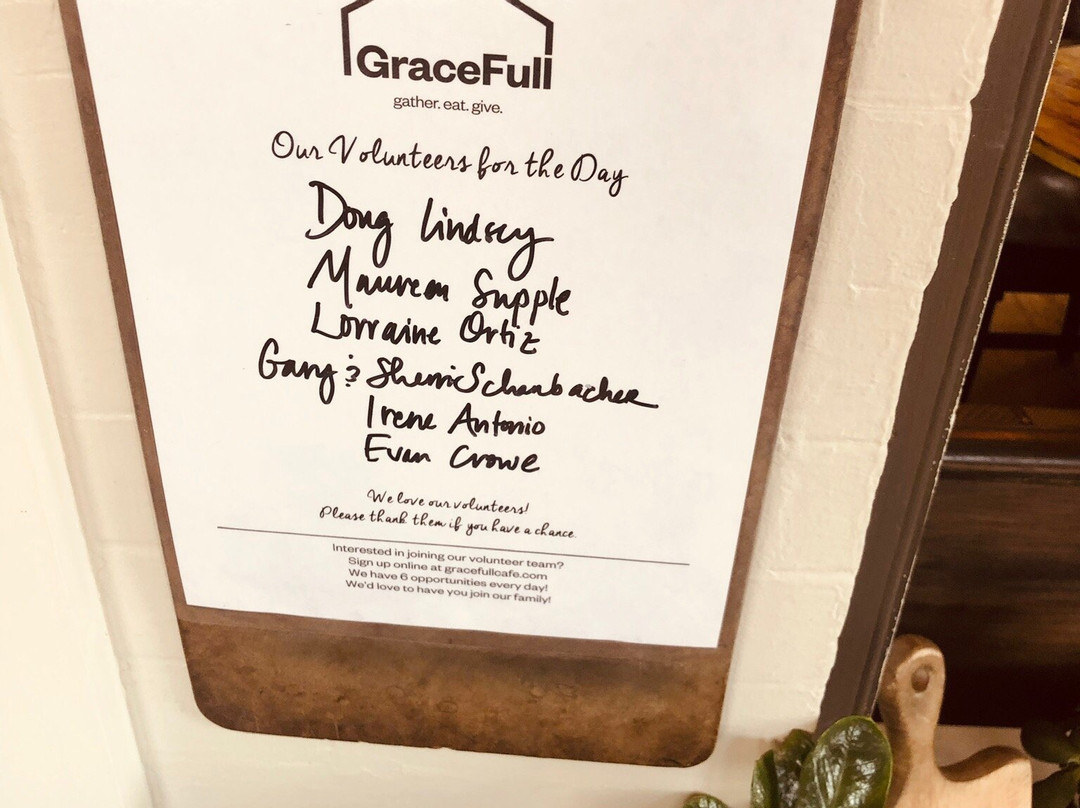 GraceFull
gather. eat. give.
Our Volunteers for the Day
Doug Lindsey
Maureen Supple
Lorraine Ortiz
Gary & Sherrie Schanbacher
Irene Antonio
Evan Crowe
We love our volunteers!
Please thank them if you have a chance.
Interested in joining our volunteer team?
Sign up online at gracefullcafe.com
We have 6 opportunities every day!
We'd love to have you join our family!